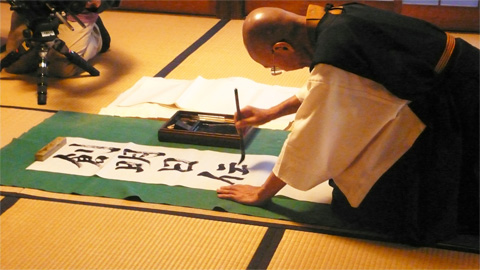 創明日伝